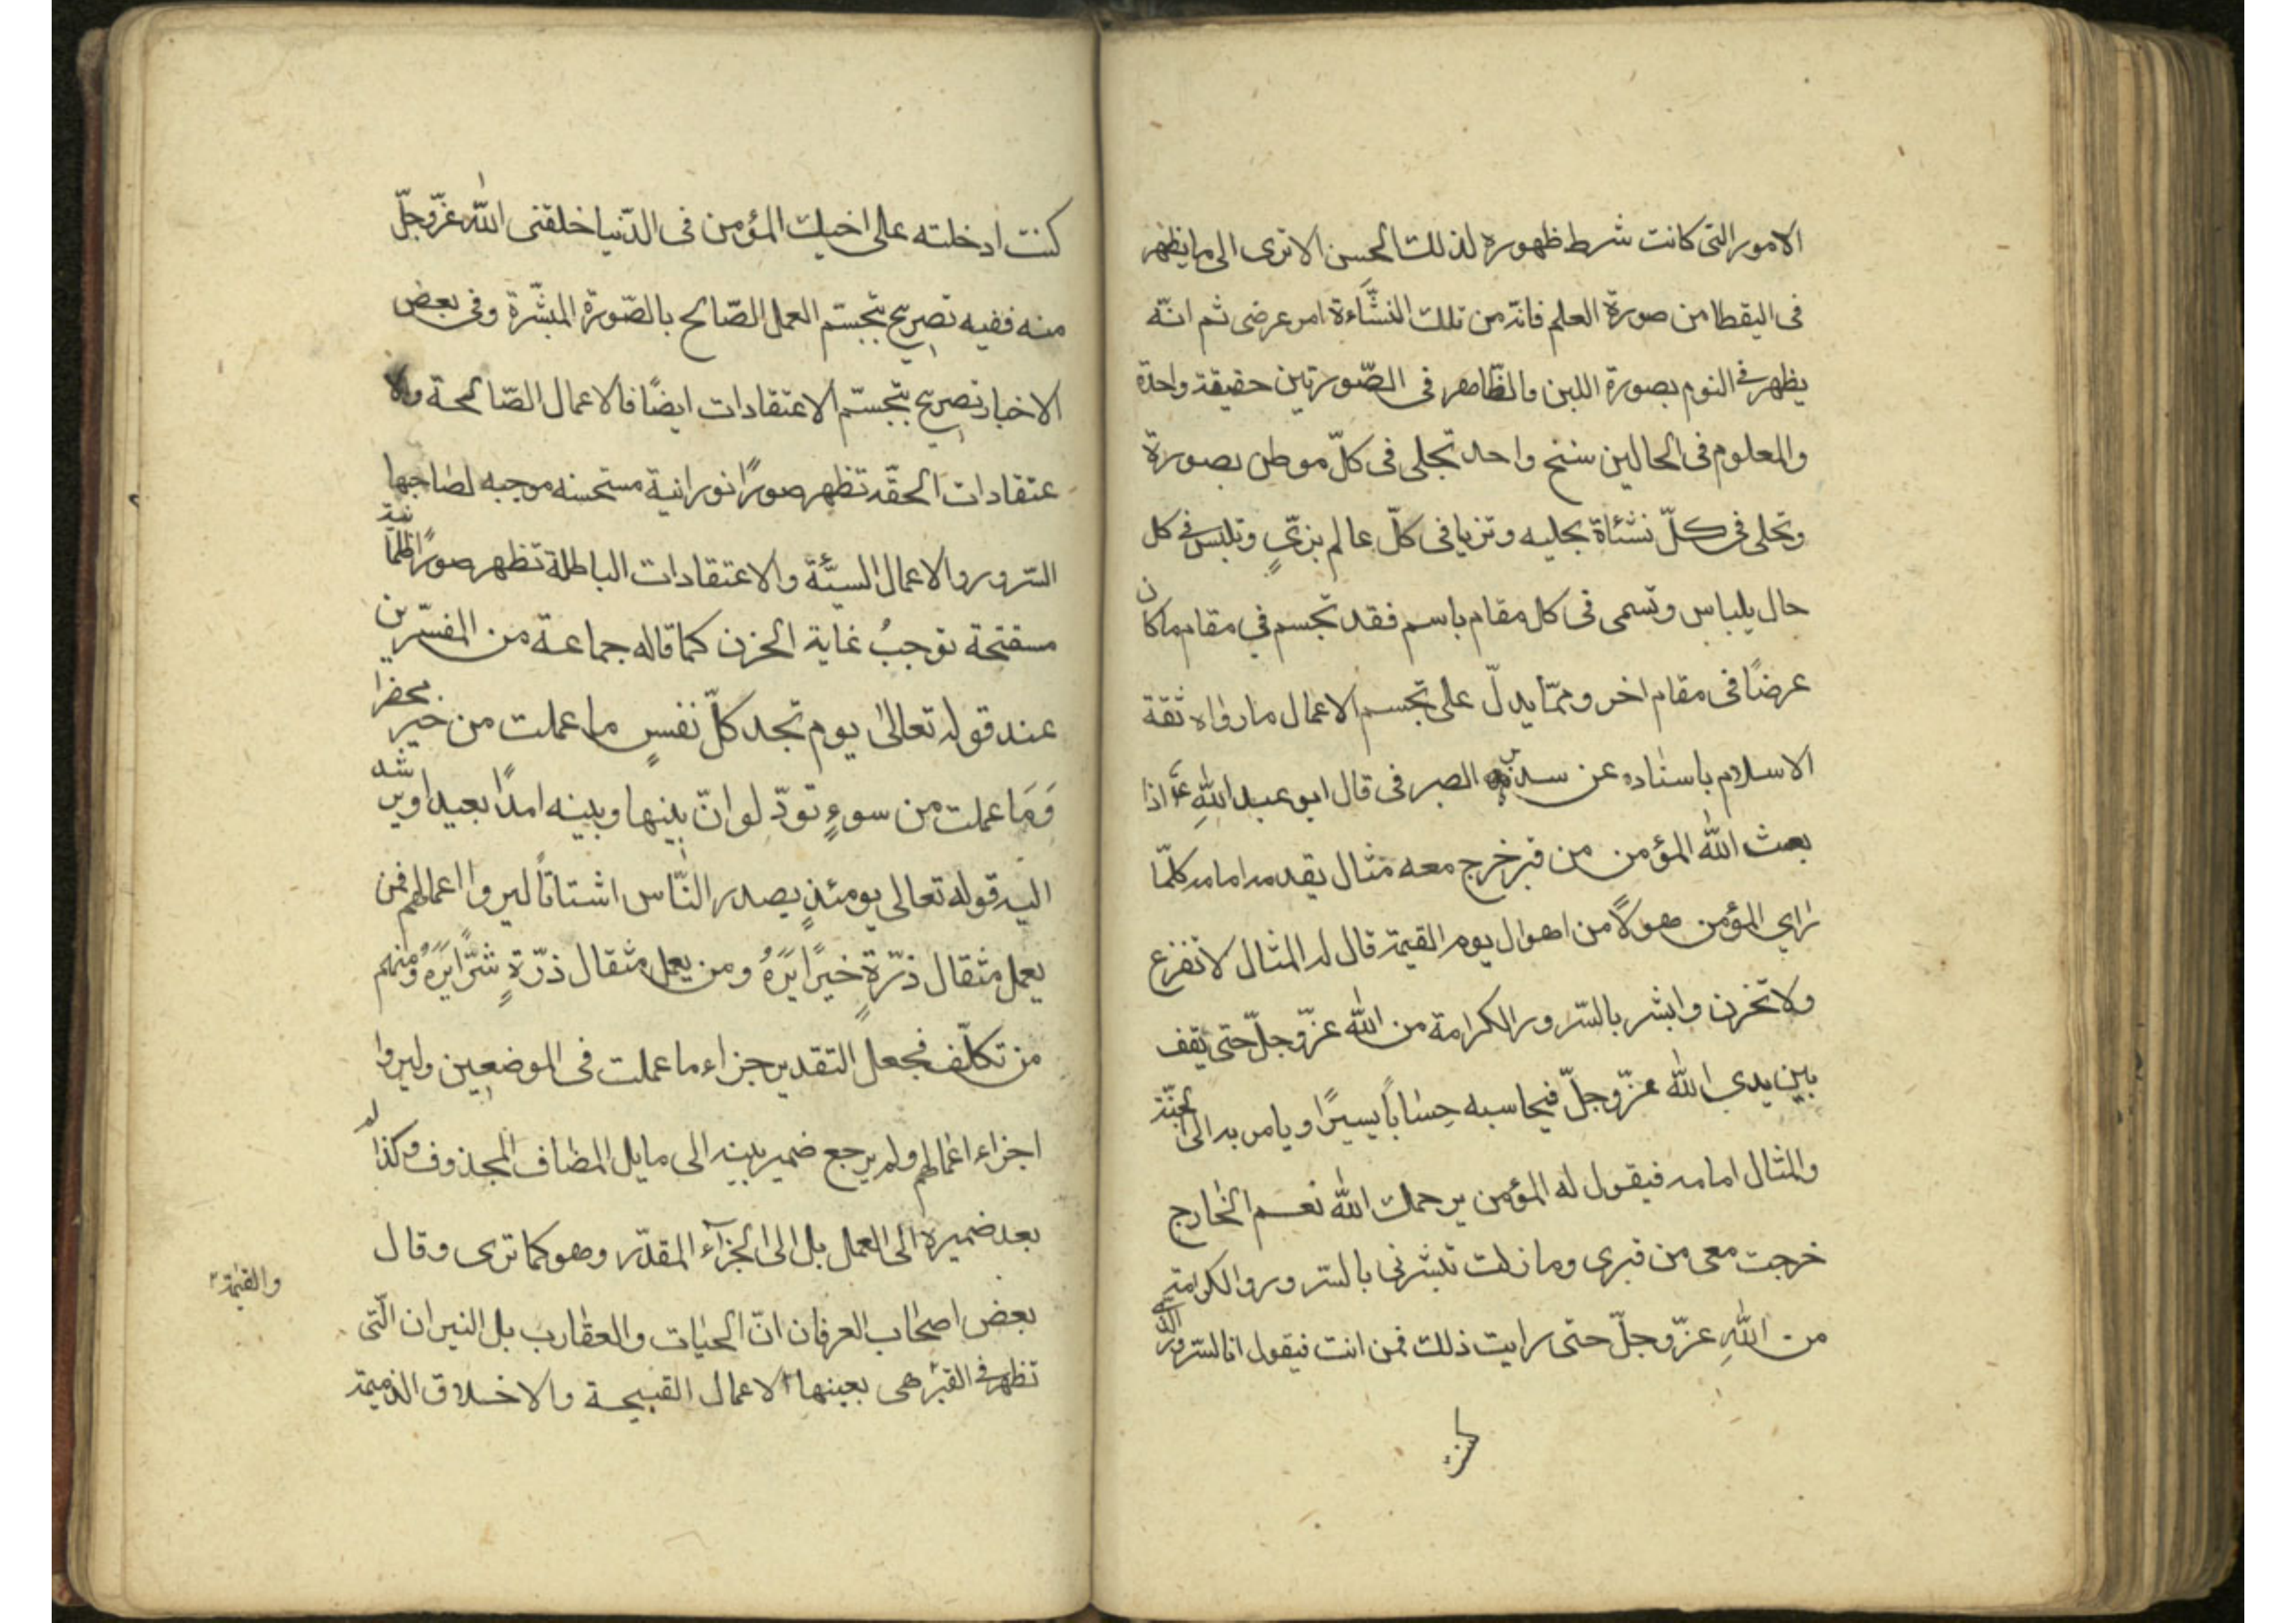 الامور التى كانت شرط ظهوره لذلك الحسن الا ترى الى ما يظهر
فى اليقظا من صورة العلم فانه من تلك النشّاءة امر عرضى ثم انّه
يظهر فى النوم بصورة اللبن والظّاهر فى الصّورتين حقيقة واحدة
والمعلوم فى الحالين سنخ واحد تجلى فى كلّ موطن بصورة
وتحلى فى كلّ نشئاة بحليه وتزيا فى كلّ عالم بزىٍّ وتلبس فى كل
حال بلباس وتسمى فى كل مقام باسم فقد تجسم فى مقام ما كان
عرضًا فى مقام اخر وممّا يدلّ على تجسم الاعمال ما رواه ثقة
الاسلام باسناده عن سدير الصيرفى قال ابو عبد اللهِ ع اذا
بعث الله المؤمن من قبر خرج معه مثال يقدمه امامه كلّما
راى المؤمن هولًا من اهوال يوم القيمة قال له المثال لا تفزع
ولا تحزن وابشر بالسّرور والكرامة من الله عزّوجلّ حتى يقف
بين يدى الله عزّوجلّ فيحاسبه حِسابًا يسيرًا ويامر به الى الجنّة
والمثال امامه فيقول له المؤمن يرحمك الله نعم الخارج
خرجت معى من قبرى وما زلت تبشرنى بالسّرور والكرامة
من اللهِ عزّوجلّ حتى رايت ذلك فمن انت فيقول انا السّرور الّذى
كنت
كنت ادخلته على اخيك المؤمن فى الدّنيا خلقنى الله عزّوجلّ
منه ففيه تصريح بتجسّم العمل الصّالح بالصّورة المبشّرة وفى بعض
الاخبار تصريح بتجسّم الاعتقادات ايضًا فالاعمال الصّالحة والا
عتقادات الحقّه تظهر صورًا نورانية مستحسنه موجبه لصاحبها
السّرور والاعمال السيّئة والاعتقادات الباطلة تظهر صورًا ظلمانية
مستقبحة توجبُ غاية الحزن كما قاله جماعة من المفسّرين
عند قوله تعالى يوم تجد كلّ نفسٍ ما عملت من خير محضرا
وَمَا عملت من سوءٍ تودّ لو انّ بينها وبينه امدًا بعيدا ويرشد
اليه قوله تعالى يومئذٍ يصدر النّاس اشتاتًا ليروا اعمالهم فمن
يعمل مثقال ذرّةٍ خيرًا يَرَهُ ومن يعمل مثقال ذرّةٍ شرًّا يَرَهُ ومنهم
من تكلّف فجعل التقدير جزاء ما عملت فى الموضعين وليروا
اجزاء اعمالهم ولم يرجع ضمير بينه الى ما بل المضاف المحذوف وكذا له
بعد ضميره الى العمل بل الى الجزآء المقدّر وهو كما ترى وقال
بعض اصحاب العرفان انّ الحيات والعقارب بل النيران الّتى
تظهر فى القبر هى بعينها الاعمال القبيحة والاخلاق الذميمة
والقيمة